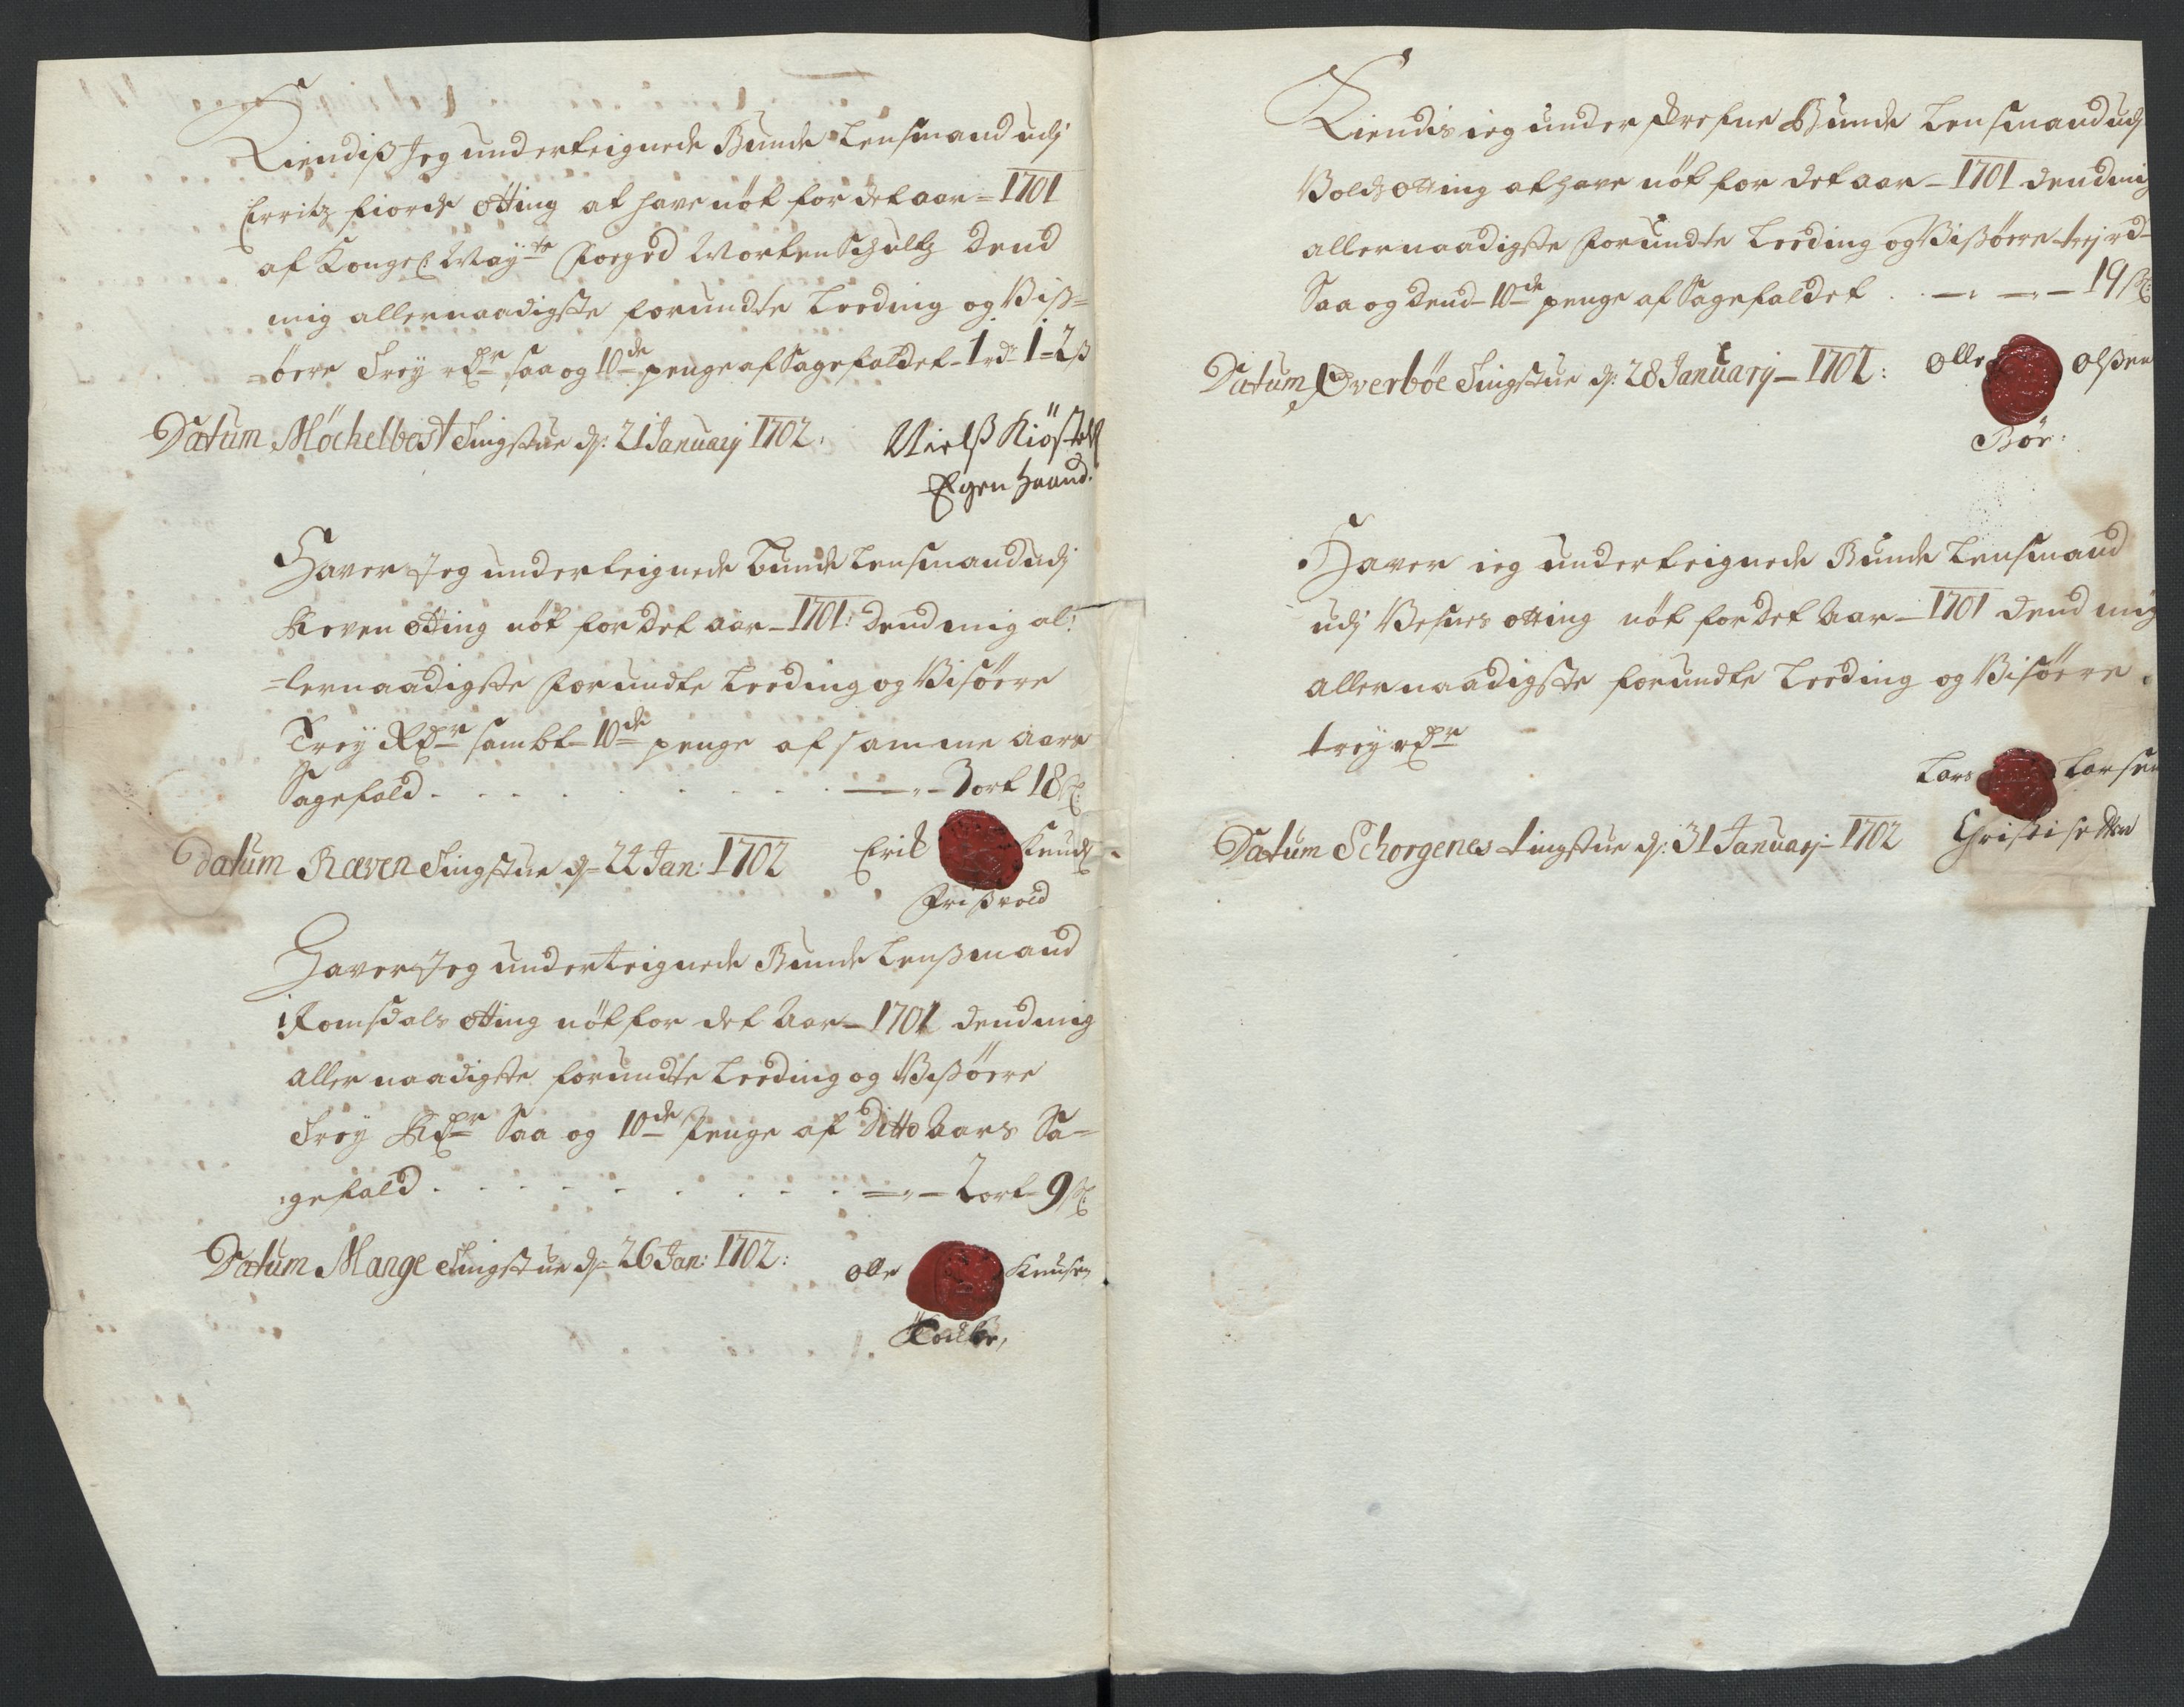 Kiendiß Jeg underteignede Bunde Lensmand udj
Erritz fiords otting at have nöt for det aar = 1701
af Kongel: May:ts Foeged Morten Schultz dend
mig allernaadigste forundte Leeding og Viß=
=öere Trey rdr saa og 10de penge af Sagefaldet - 1 rdr 1 = 2 ß
Datum Möchelbost Tingstue d: 21 Januarj 1702.
Nielß Kiöstelß
Egen Haand.
Haver Jeg underteignede bunde Lensmand udj
Reven otting nöt for det aar - 1701: dend mig al:
=lernaadigste forundte Leeding og Visöere
Trey Rdr sambt 10de penge af samme aars
Sagefald . . . . . . . . — „ — 3 ort 18 ß:
Datum Ræven Tingstue d= 24 Jan: 1702
Erik Knudß
Frißvold
Haver Jeg underteignede Bunde Lenßmand
i Romsdals otting nöt for det Aar - 1701 dend mig
aller naadigste forundte Leeding og Vißöere
Trey Rdr Saa og 10de Penge af Ditto Aars Sa=
:gefald . . . . . . . . — „ — 2 ort - 9 ß:
Datum Mange Tingstue d= 26 Jan: 1702:
olle Knusen
Kiendis ieg underskrefne Bunde Lensmand udj
Bolds otting at have nöt for det aar - 1701 dend mig
allernaadigste forundte Leeding og Vißöere trej rd-
Saa og dend 10de penge af Sagefaldet . — „ — „ — 19 ß:
Datum Överböe Tingstue d: 28 Januarij - 1702:
olle olßen
Bör:
Haver ieg underteignede Bunde Lensmand
udj Vesnes otting nöt for det Aar - 1701 dend mig
aller naadigste forundte Leeding og Visöere
trey rdr
Lars Larsen
Datum Schorgenes tingstue d: 31 Januarj - 1702